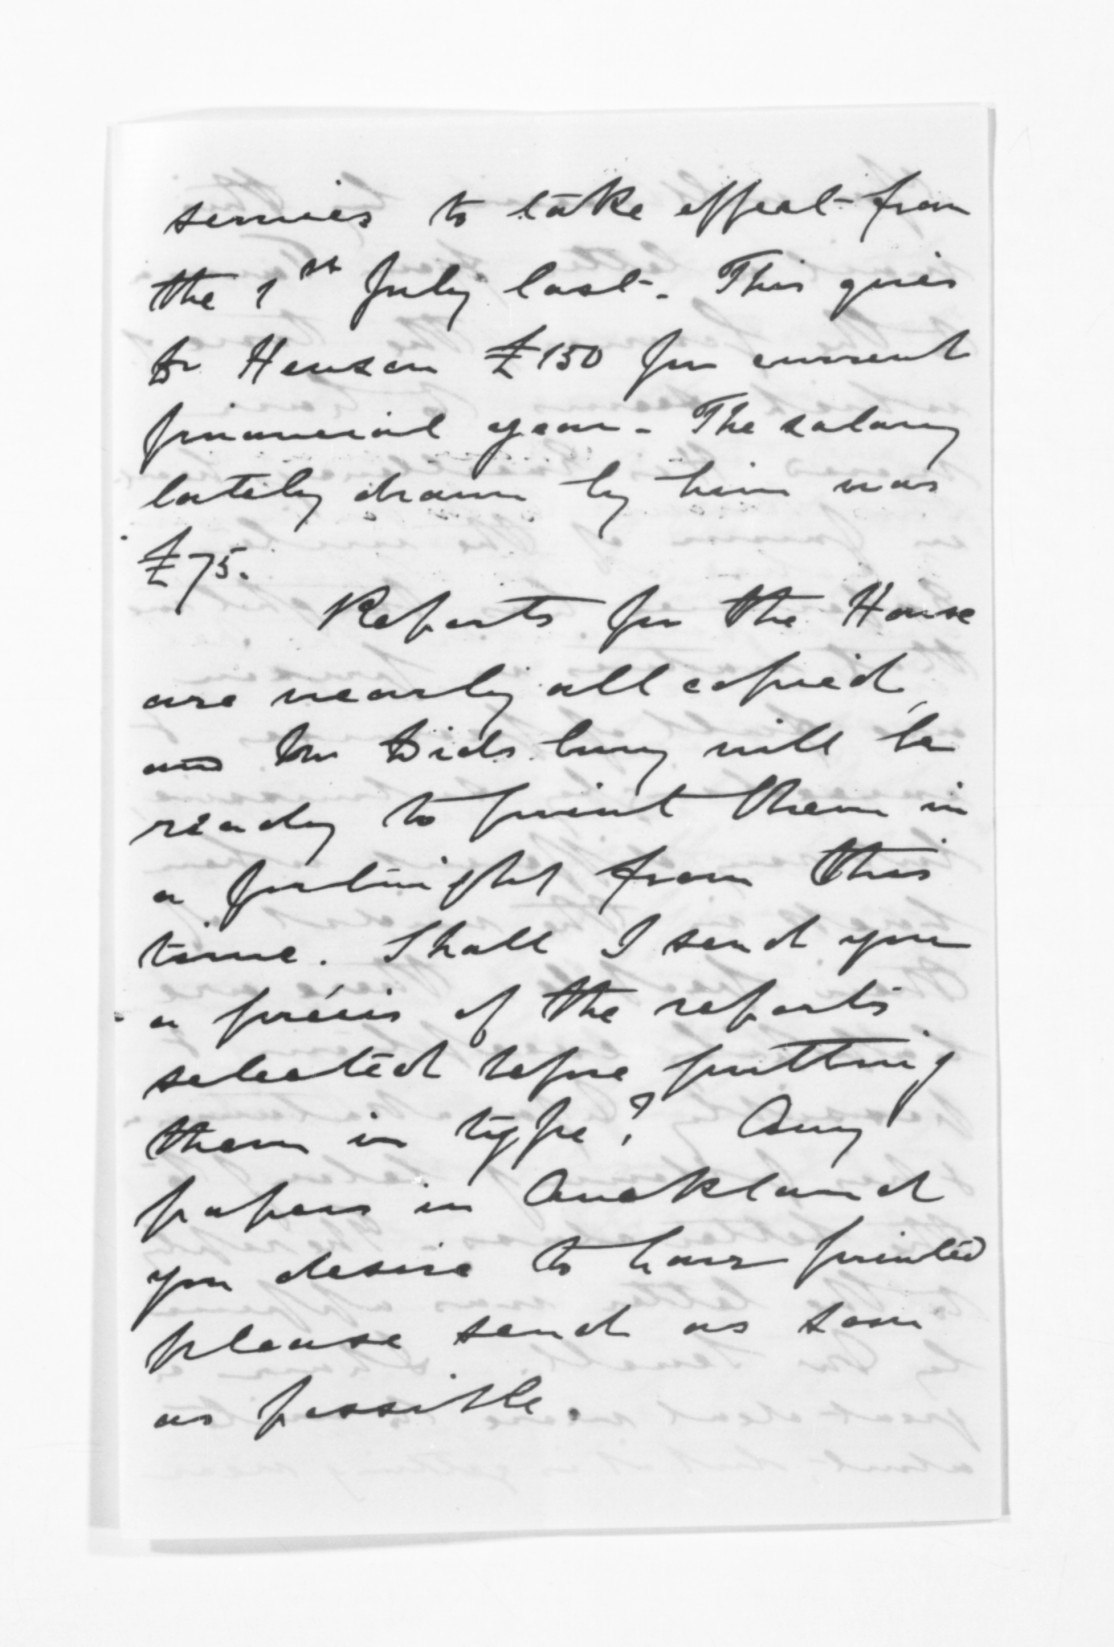 services to take effect from
the 1st July last. This gives
Dr Henson £150 for current
financial year. The salary
lately drawn by him was
£75.
Reports for the House
are nearly all copied,
and Mr Didsbury will be
ready to print them in
a fortnight from this
time. Shall I send you
a précis of the reports
selected before putting
them in type? Any
papers in Auckland
you desire to have printed
please send as soon
as possible.